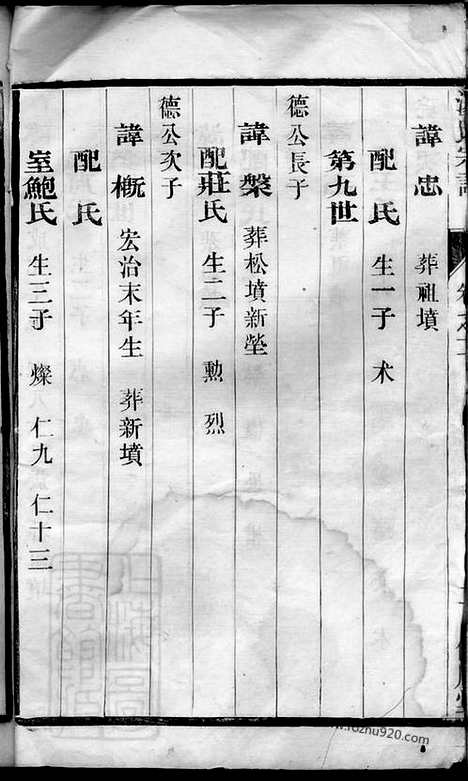 諱忠 葬祖墳
配 氏 生一子 术
第九世
德公長子
諱槃 葬松墳新塋
配莊氏 生二子 勲 烈
德公次子
諱概 宏治末年生 葬新墳
配 氏
室鮑氏 生三子 燦 仁九 仁十三
www.fozhu920.com